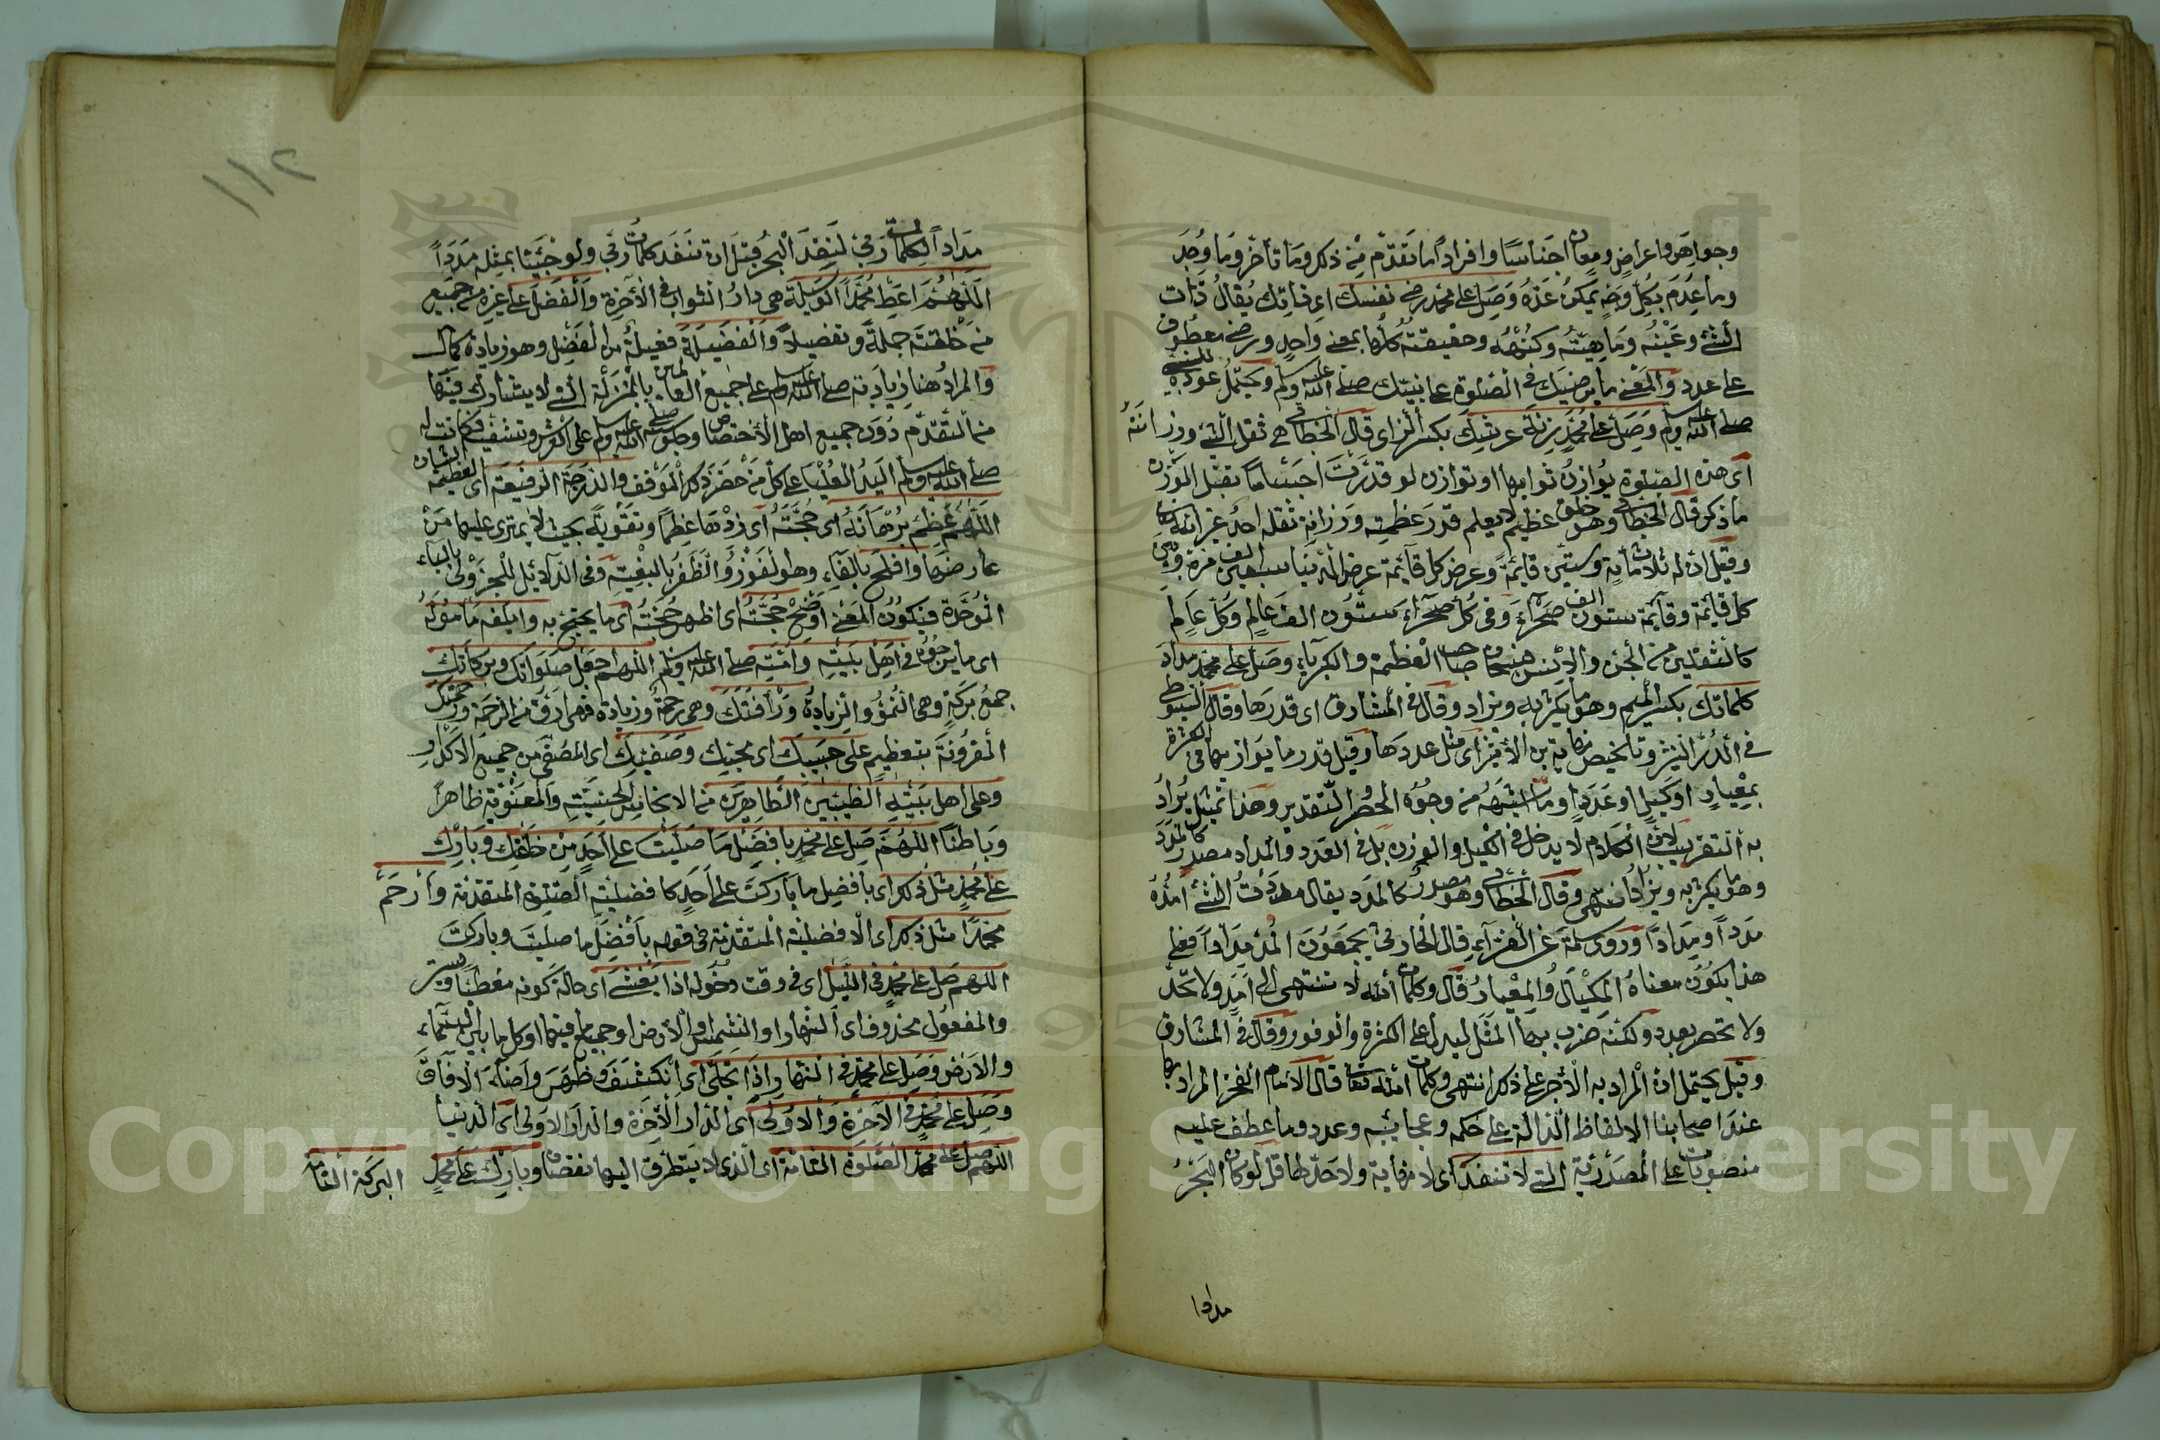 وجواهر واعراض ومعان اجناسا وافرادا ما تقدم من ذكر وما تأخر وما وجد
وما عدم بكل وجه يمكن عده وصل على محمد رضى نفسك اى ذاتك يقال ذات
الشئ وعينه وماهيته وكنهه وحقيقته كلها بمعنى واحد ورضى معطوف
على عدد والمعنى ما يرضيك فى الصلوة على نبيك صلى الله عليه وسلم ويحتمل عوده للنبى
صلى الله عليه وسلم وصل على محمد زنة عرشك بكسر الزاى قال الخطابى هى ثقل الشئ ورزانته
اى هذه الصلوة يوازن ثوابها او توازن لو قدرت اجساما تقبل الوزن
ما ذكر قال الخطابى وهو خلق عظيم لا يعلم قدر عظمته ورزانة ثقله احد غير الله
وقيل ان له ثلاثمائة وستين قائمة وعرض كل قائمة عرض الدنيا سبعين الف مرة وبين
كل قائمة وقائمة ستون الف صحراء وفى كل صحراء ستون الف عالم وكل عالم
كالثقلين من الجن والانس فسبحان صاحب العظمة والكبرياء وصل على محمد مداد
كلماتك بكسر الميم وهو ما يكثر به ويزاد وقال فى المشارق اى قدرها وقال السيوطى
فى الدر النثير وتلخيص نهاية بن الاثير اى مثل عددها وقيل قدر ما يوازيها فى الكثرة
بمعيار او كيل او عدد او ما اشبهه من وجوه الحصر والتقدير وهذا تمثيل يراد
به التقريب لان الكلام لا يدخل فى الكيل والوزن بل فى العدد والمداد مصدر كالمدد
وهو ما يكثر به ويزاد انتهى وقال الخطابى وهو مصدر كالمدد يقال مددت الشئ امده
مددا ومدادا وروى سلمة عن الفراء قال الحارثى يجمعون المد مدادا فعلى
هذا يكون معناه المكيال والمعيار قال وكلمات الله لا تنتهى الى امد ولا تحد
ولا تحصر بعدد ولكنه ضرب بها المثل ليدل على الكثرة والوفور وقال فى المشارق
وقيل يحتمل ان المراد به الاجر على ذكر انتهى وكلمات الله تعالى قال الامام الفخر المراد بها
عند اصحابنا الالفاظ الدالة على حكمه وعجائبه وعدد وما عطف عليه
منصوبات على المصدرية التى لا تنفد اى لا نهاية ولا حد لها قل لو كان البحر
مدادا
١١٢
مدادا لكلمات ربى لنفد البحر قبل ان تنفد كلمات ربى ولو جئنا بمثله مددا
اللهم اعط محمدا الوسيلة هى دار الثواب فى الاخرة والفضل على غيره من جميع
من خلقته جملة وتفصيلا والفضيلة فعيلة من الفضل وهو زيادة كمال
والمراد هنا زيادته صلى الله عليه وسلم على جميع العالمين بالمنزلة التى لا يشارك فيها
من التقدم دون جميع اهل الاختصاص وجلوسه صلى الله عليه وسلم على العرش وتشفيعه فكانت له
صلى الله عليه وسلم اليد العليا على كل من حضر ذلك الموقف والدرجة الرفيعة اى العظيمة الشان
اللهم عظم برهانه اى حجته اى زدها عظما وتقوية بحيث لا يمترى عليها من
عارضها وافلح بالفاء وهو الفوز والظفر بالبغية وفى الدلائل للجزولى بالباء
الموحدة فيكون المعنى اوضح حجته اى اظهر حجته اى ما يحتج به وابلغه مأموله
اى ما يرجوه فى اهل بيته وامته صلى الله عليه وسلم اللهم اجعل صلواتك وبركاتك
جمع بركة وهى النمو والزيادة ورأفتك وهى رحمة وزيادة فهى ارق من الرحمة ورحمتك
المقرونة بتعظيم على حبيبك اى محبك وصفيك اى المصفى من جميع الاكدار
وعلى اهل بيته الطيبين الطاهرين من الانجاس الحسية والمعنوية ظاهرا
وباطنا اللهم صل على محمد بافضل ما صليت على احد من خلقك وبارك
على محمد مثل ذلك اى بافضل ما باركت على احد كافضلية الصلوة المتقدمة وارحم
محمدا مثل ذلك اى الافضلية المتقدمة فى قوله بافضل ما صليت وباركت
اللهم صل على محمد فى الليل اى فى وقت دخوله اذا يغشى اى حالة كونه مغطيا ويستر
والمفعول محذوف اى النهار او الشمس او الارض او جميع ما فيها او كل ما بين السماء
والارض وصل على محمد فى النهار اذا تجلى اى انكشف وظهر واضاء الافاق
وصل على محمد فى الآخرة والاولى اى الدار الاخرة والدار الاولى اى الدنيا
اللهم صل على محمد الصلوة التامة اى الذى لا يتطرق اليها نقصان وبارك على محمد البركة التامة
Copyright © King Saud University